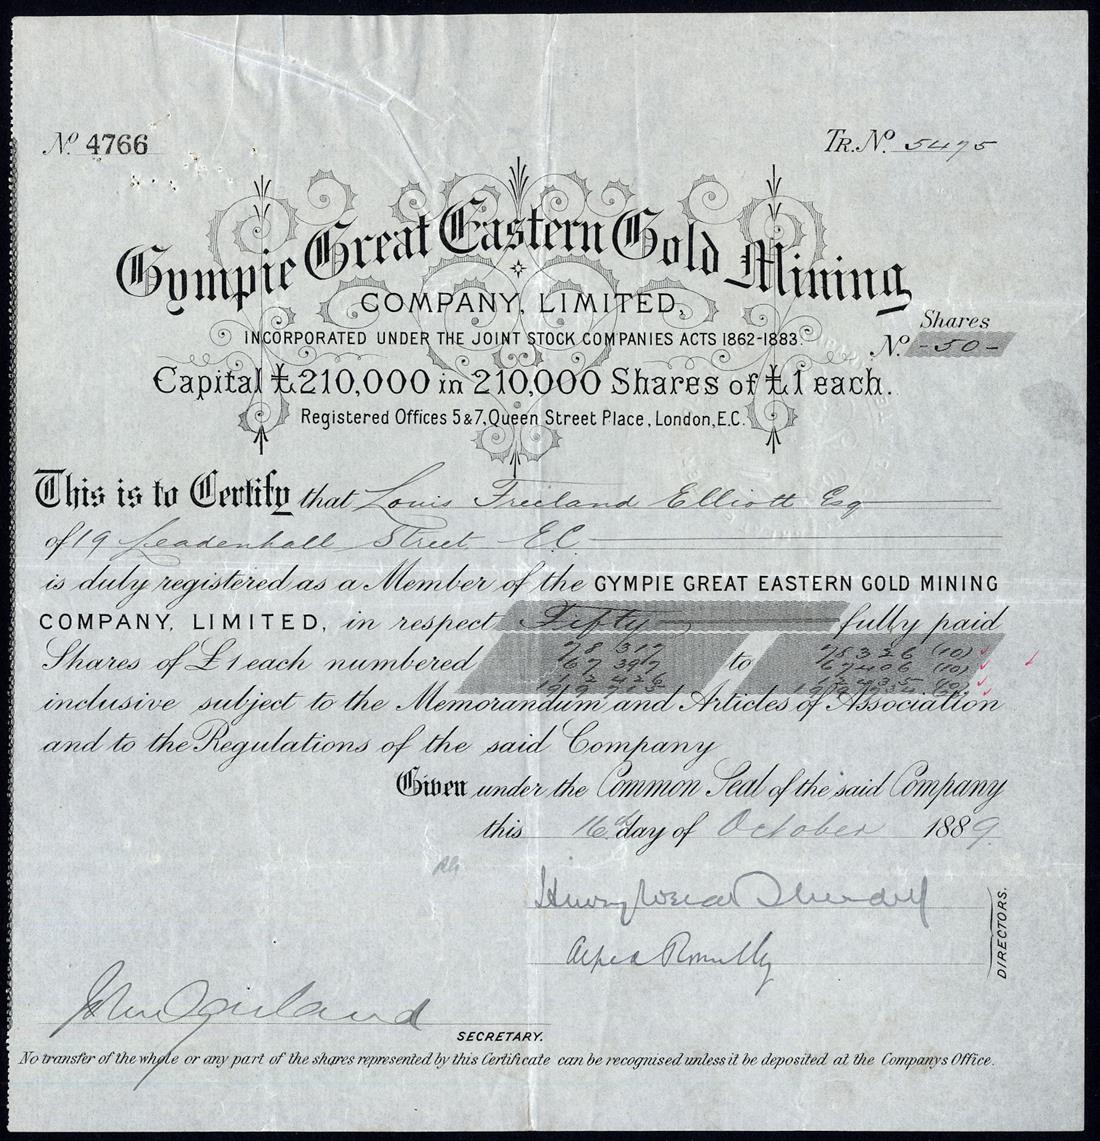 No. 4766
TR. No. 5475
Gympie Great Eastern Gold Mining
COMPANY, LIMITED,
INCORPORATED UNDER THE JOINT STOCK COMPANIES ACTS 1862-1883.
Shares
No. -50-
Capital £210,000 in 210,000 Shares of £1 each.
Registered Offices 5 & 7, Queen Street Place, London, E.C.
This is to Certify that Louis Freeland Elliott Esq
of 19 Leadenhall Street E.C.
is duly registered as a Member of the GYMPIE GREAT EASTERN GOLD MINING
COMPANY, LIMITED, in respect Fifty fully paid
78 317 78326 (10)
Shares of £1 each numbered 67 397 to 67406 (10)
12 426 12435 (10)
inclusive subject to the Memorandum and Articles of Association
and to the Regulations of the said Company
Given under the Common Seal of the said Company
this 16th day of October 1889.
Henry
Alfred Romilly
DIRECTORS.
John
SECRETARY.
No transfer of the whole or any part of the shares represented by this Certificate can be recognised unless it be deposited at the Companys Office.